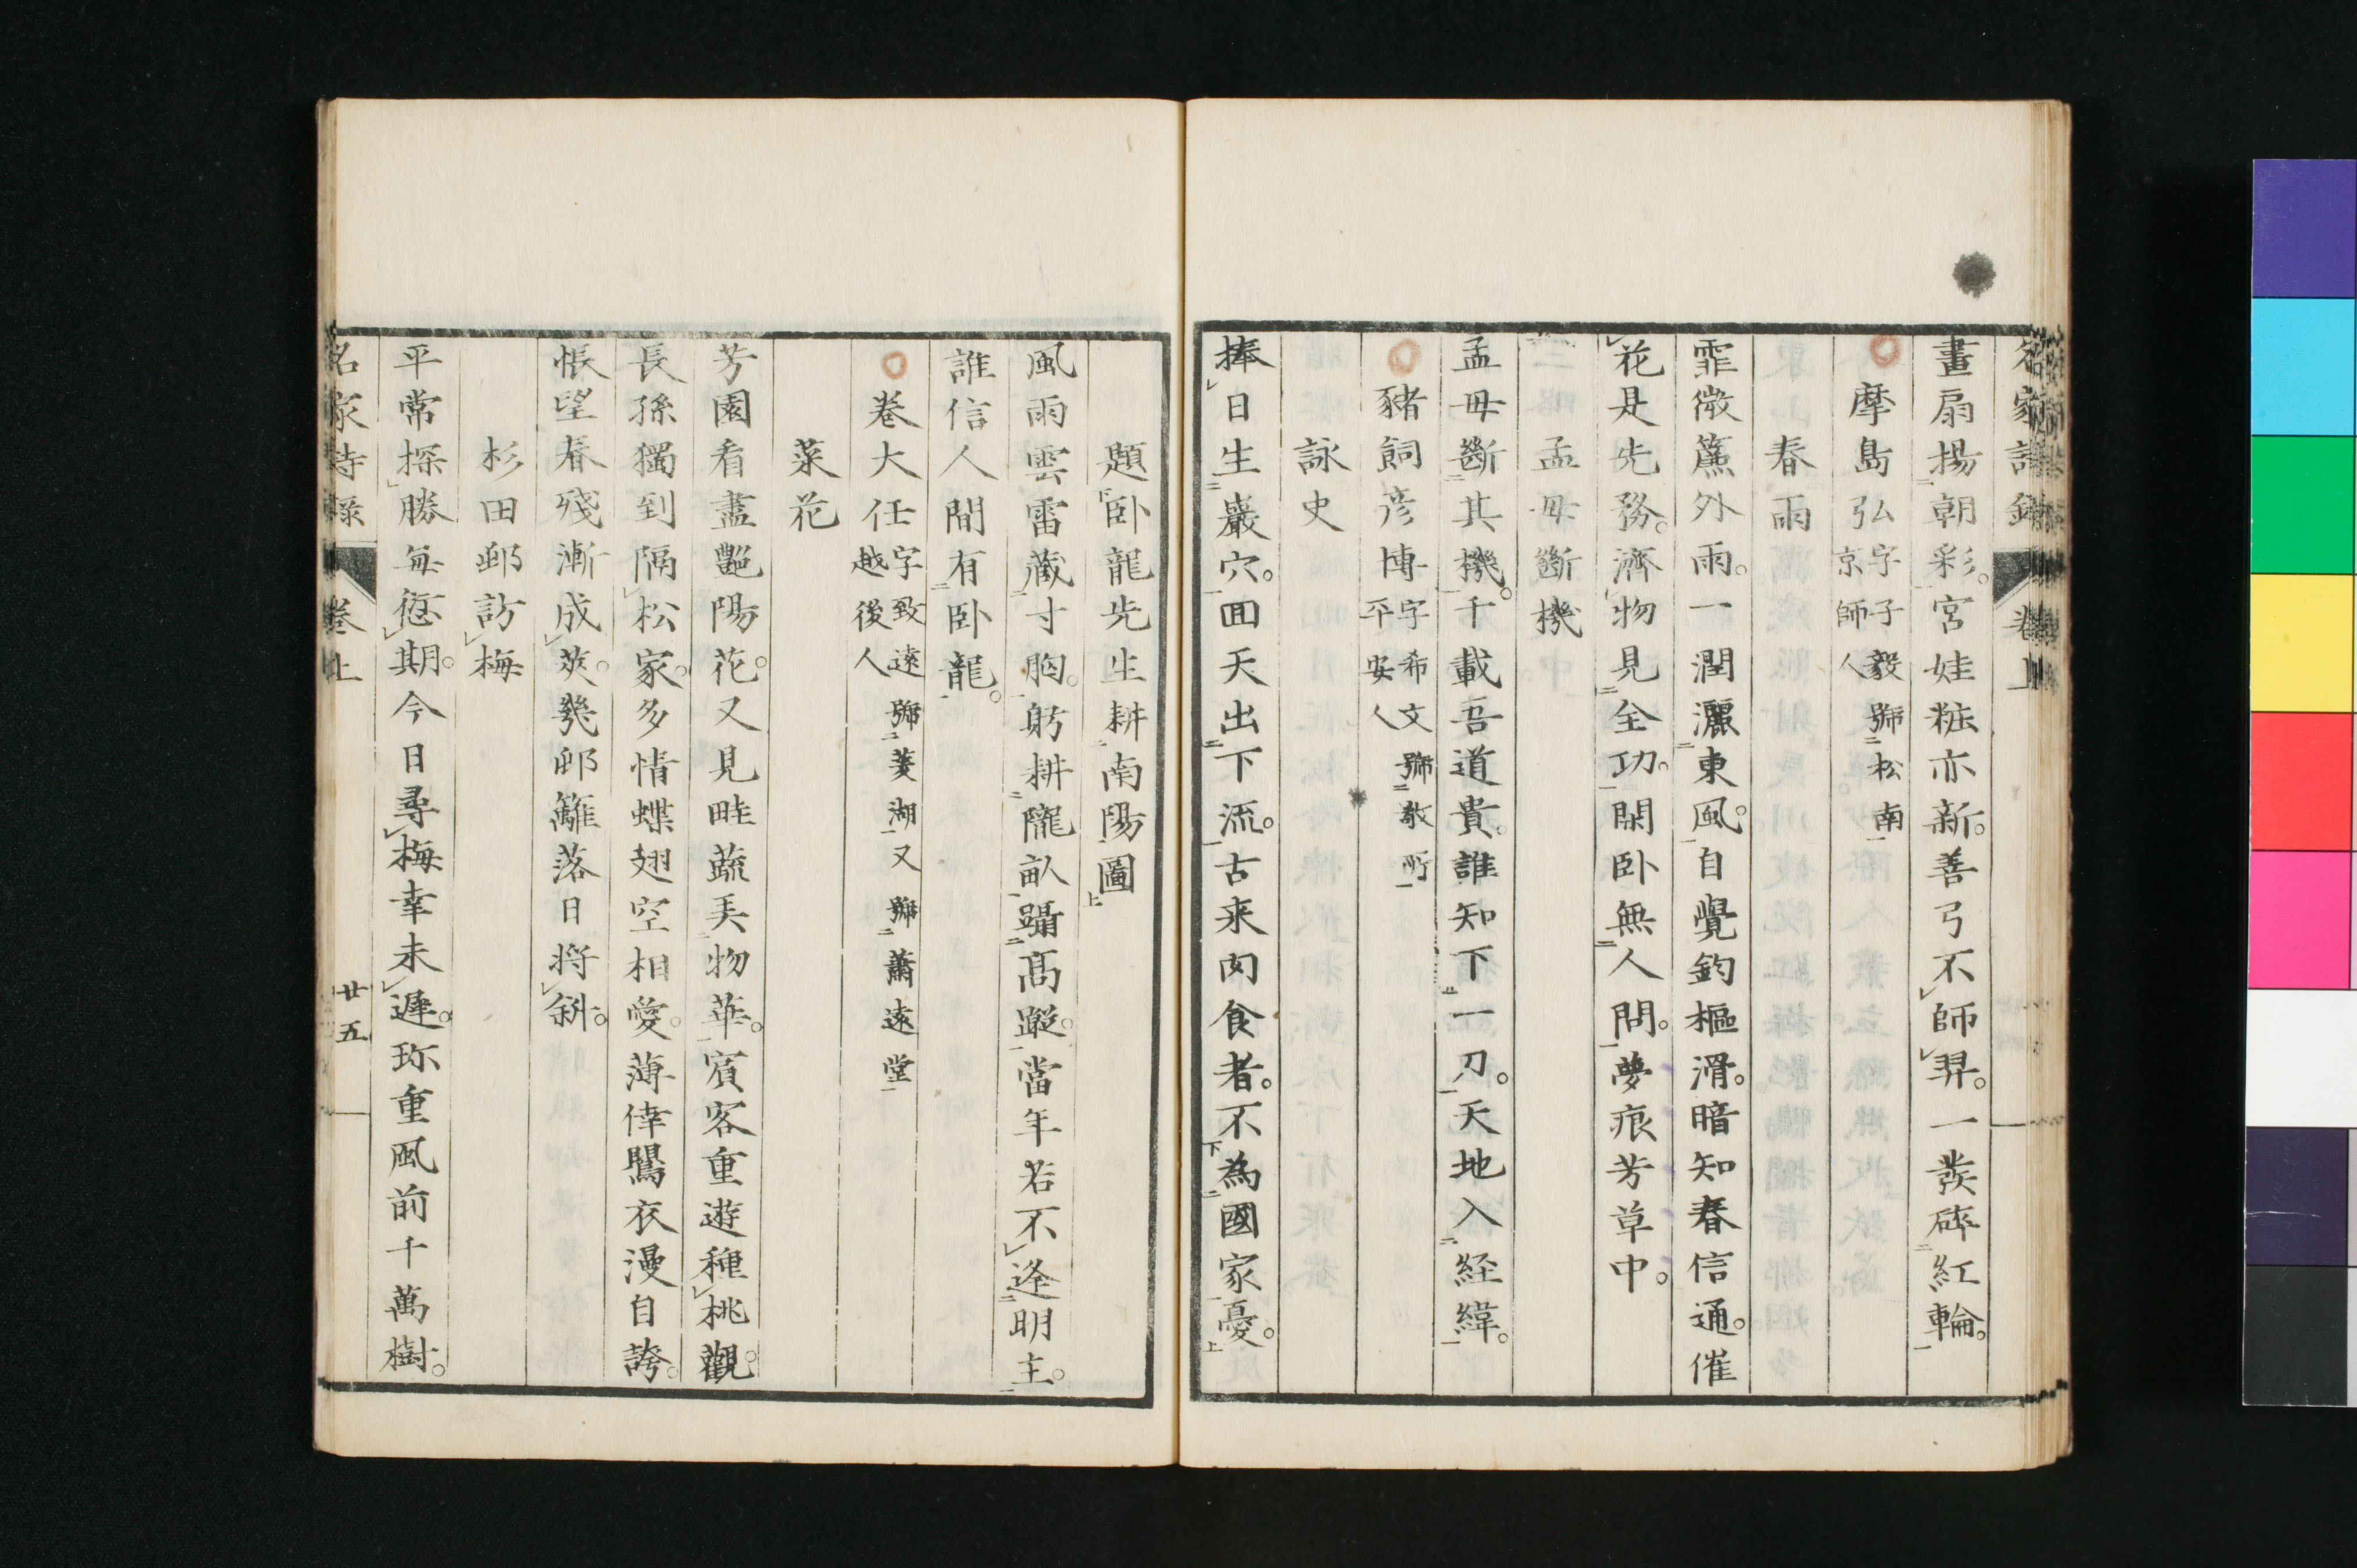 名家詩鈔 卷上
畫扇揚朝彩。宮娃粧亦新。善弓不師羿。一發碎紅輪。
摩島弘字子毅號松南京師人
春雨
霏微簾外雨。一潤灑東風。自覺鈞樞滑。暗知春信通。催
花是先務。濟物見全功。閑臥無人問。夢痕芳草中。
孟母斷機
孟母斷其機。千載吾道貴。誰知下一刀。天地入経緯。
豬飼彦博字希文號敬所平安人
詠史
捧日生巖穴。囬天出下流。古来肉食者。不為國家憂。
題臥龍先生耕南陽圖
風雨雲雷蔵寸胸。躬耕隴畝躡高蹤。當年若不逢明主。
誰信人間有臥龍。
巻大任字致遠號菱湖又號蕭遠堂越後人
菜花
芳園看盡艷陽花。又見畦蔬美物華。賓客重遊種桃觀。
長孫獨到隔松家。多情蝶翅空相愛。薄倖鶯衣漫自誇。
悵望春殘漸成莢。幾邨籬落日将斜。
杉田邨訪梅
平常探勝每愆期。今日尋梅幸未遲。珎重風前千萬樹。
名家詩鈔 卷上 廿五